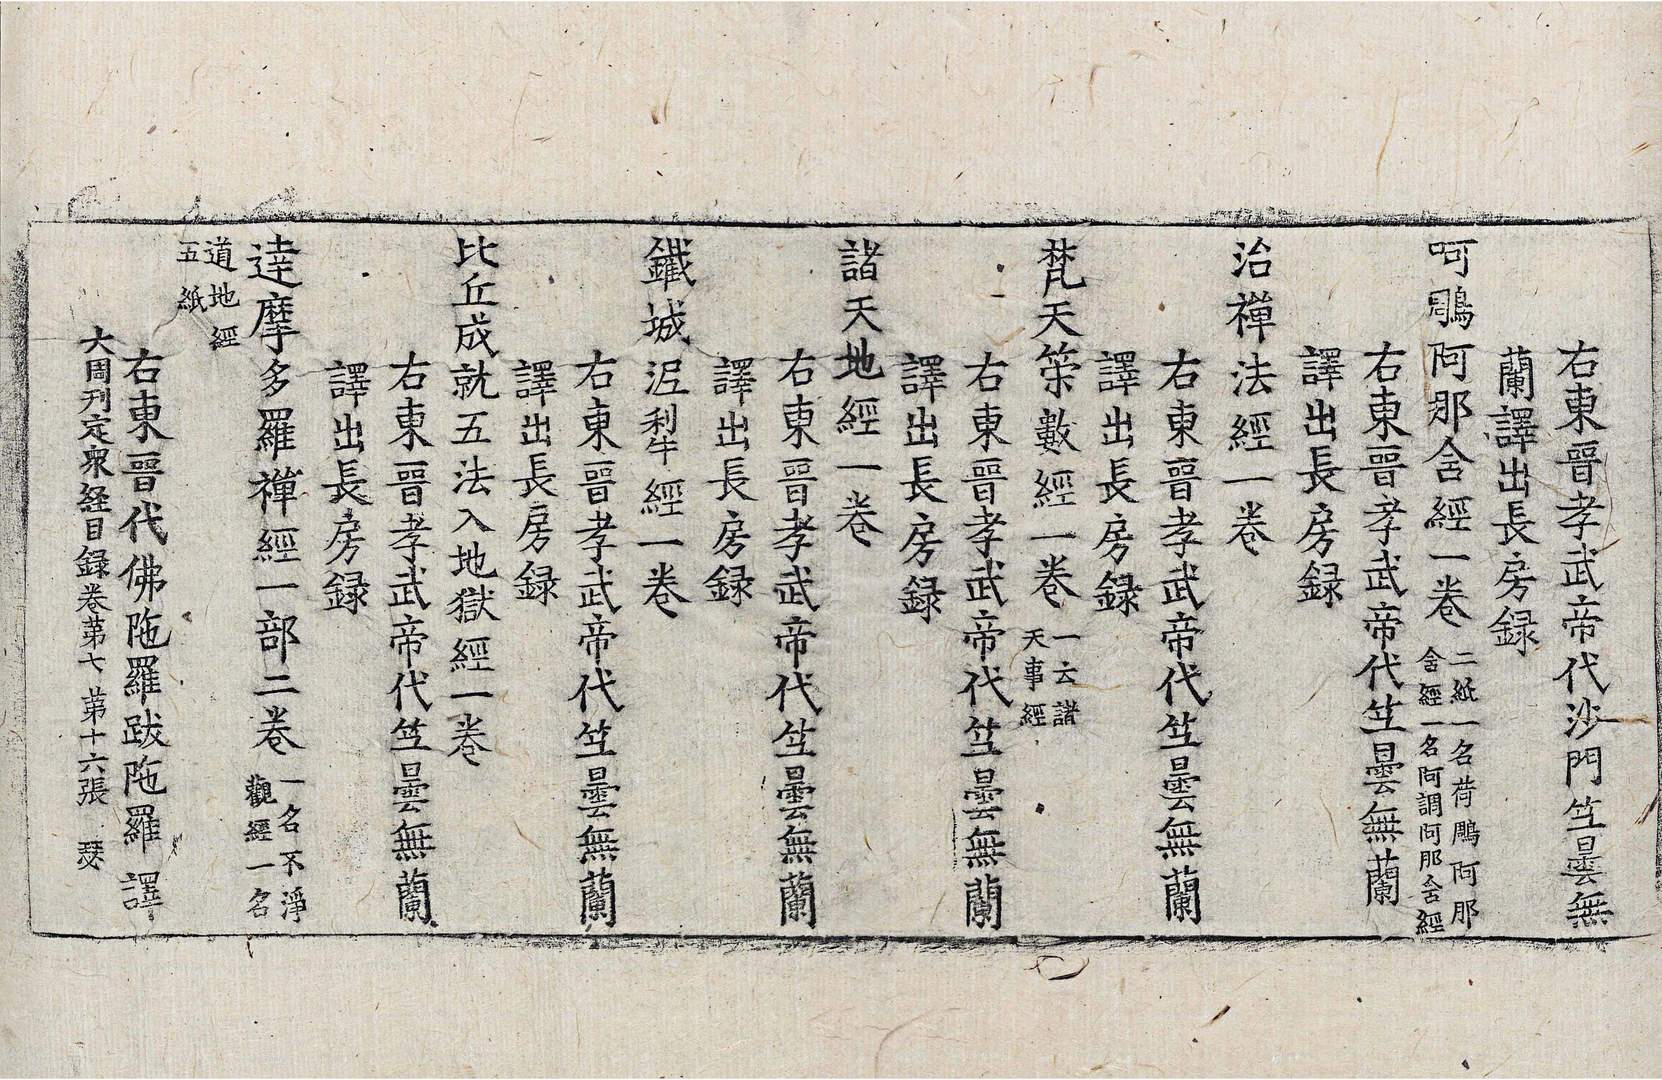 右東晉孝武帝代沙門笁曇無
蘭譯出長房録
呵鵰阿那含經一卷 二紙一名荷鵰阿那
含經一名阿調阿那含經
右東晉孝武帝代笁曇無蘭
譯出長房録
治禪法經一卷
右東晉孝武帝代笁曇無蘭
譯出長房録
梵天䇿數經一卷 一云諸
天事經
右東晉孝武帝代笁曇無蘭
譯出長房録
諸天地經一卷
右東晉孝武帝代笁曇無蘭
譯出長房録
鐵城泥利午經一卷
右東晉孝武帝代笁曇無蘭
譯出長房録
比丘成就五法入地獄經一卷
右東晉孝武帝代笁曇無蘭
譯出長房録
達摩多羅禪經一部二卷 一名不淨
觀經一名
道地經
五紙
右東晉代佛陁羅跋陁羅譯
大周刋定衆経目録卷苐七 苐十六張 瑟